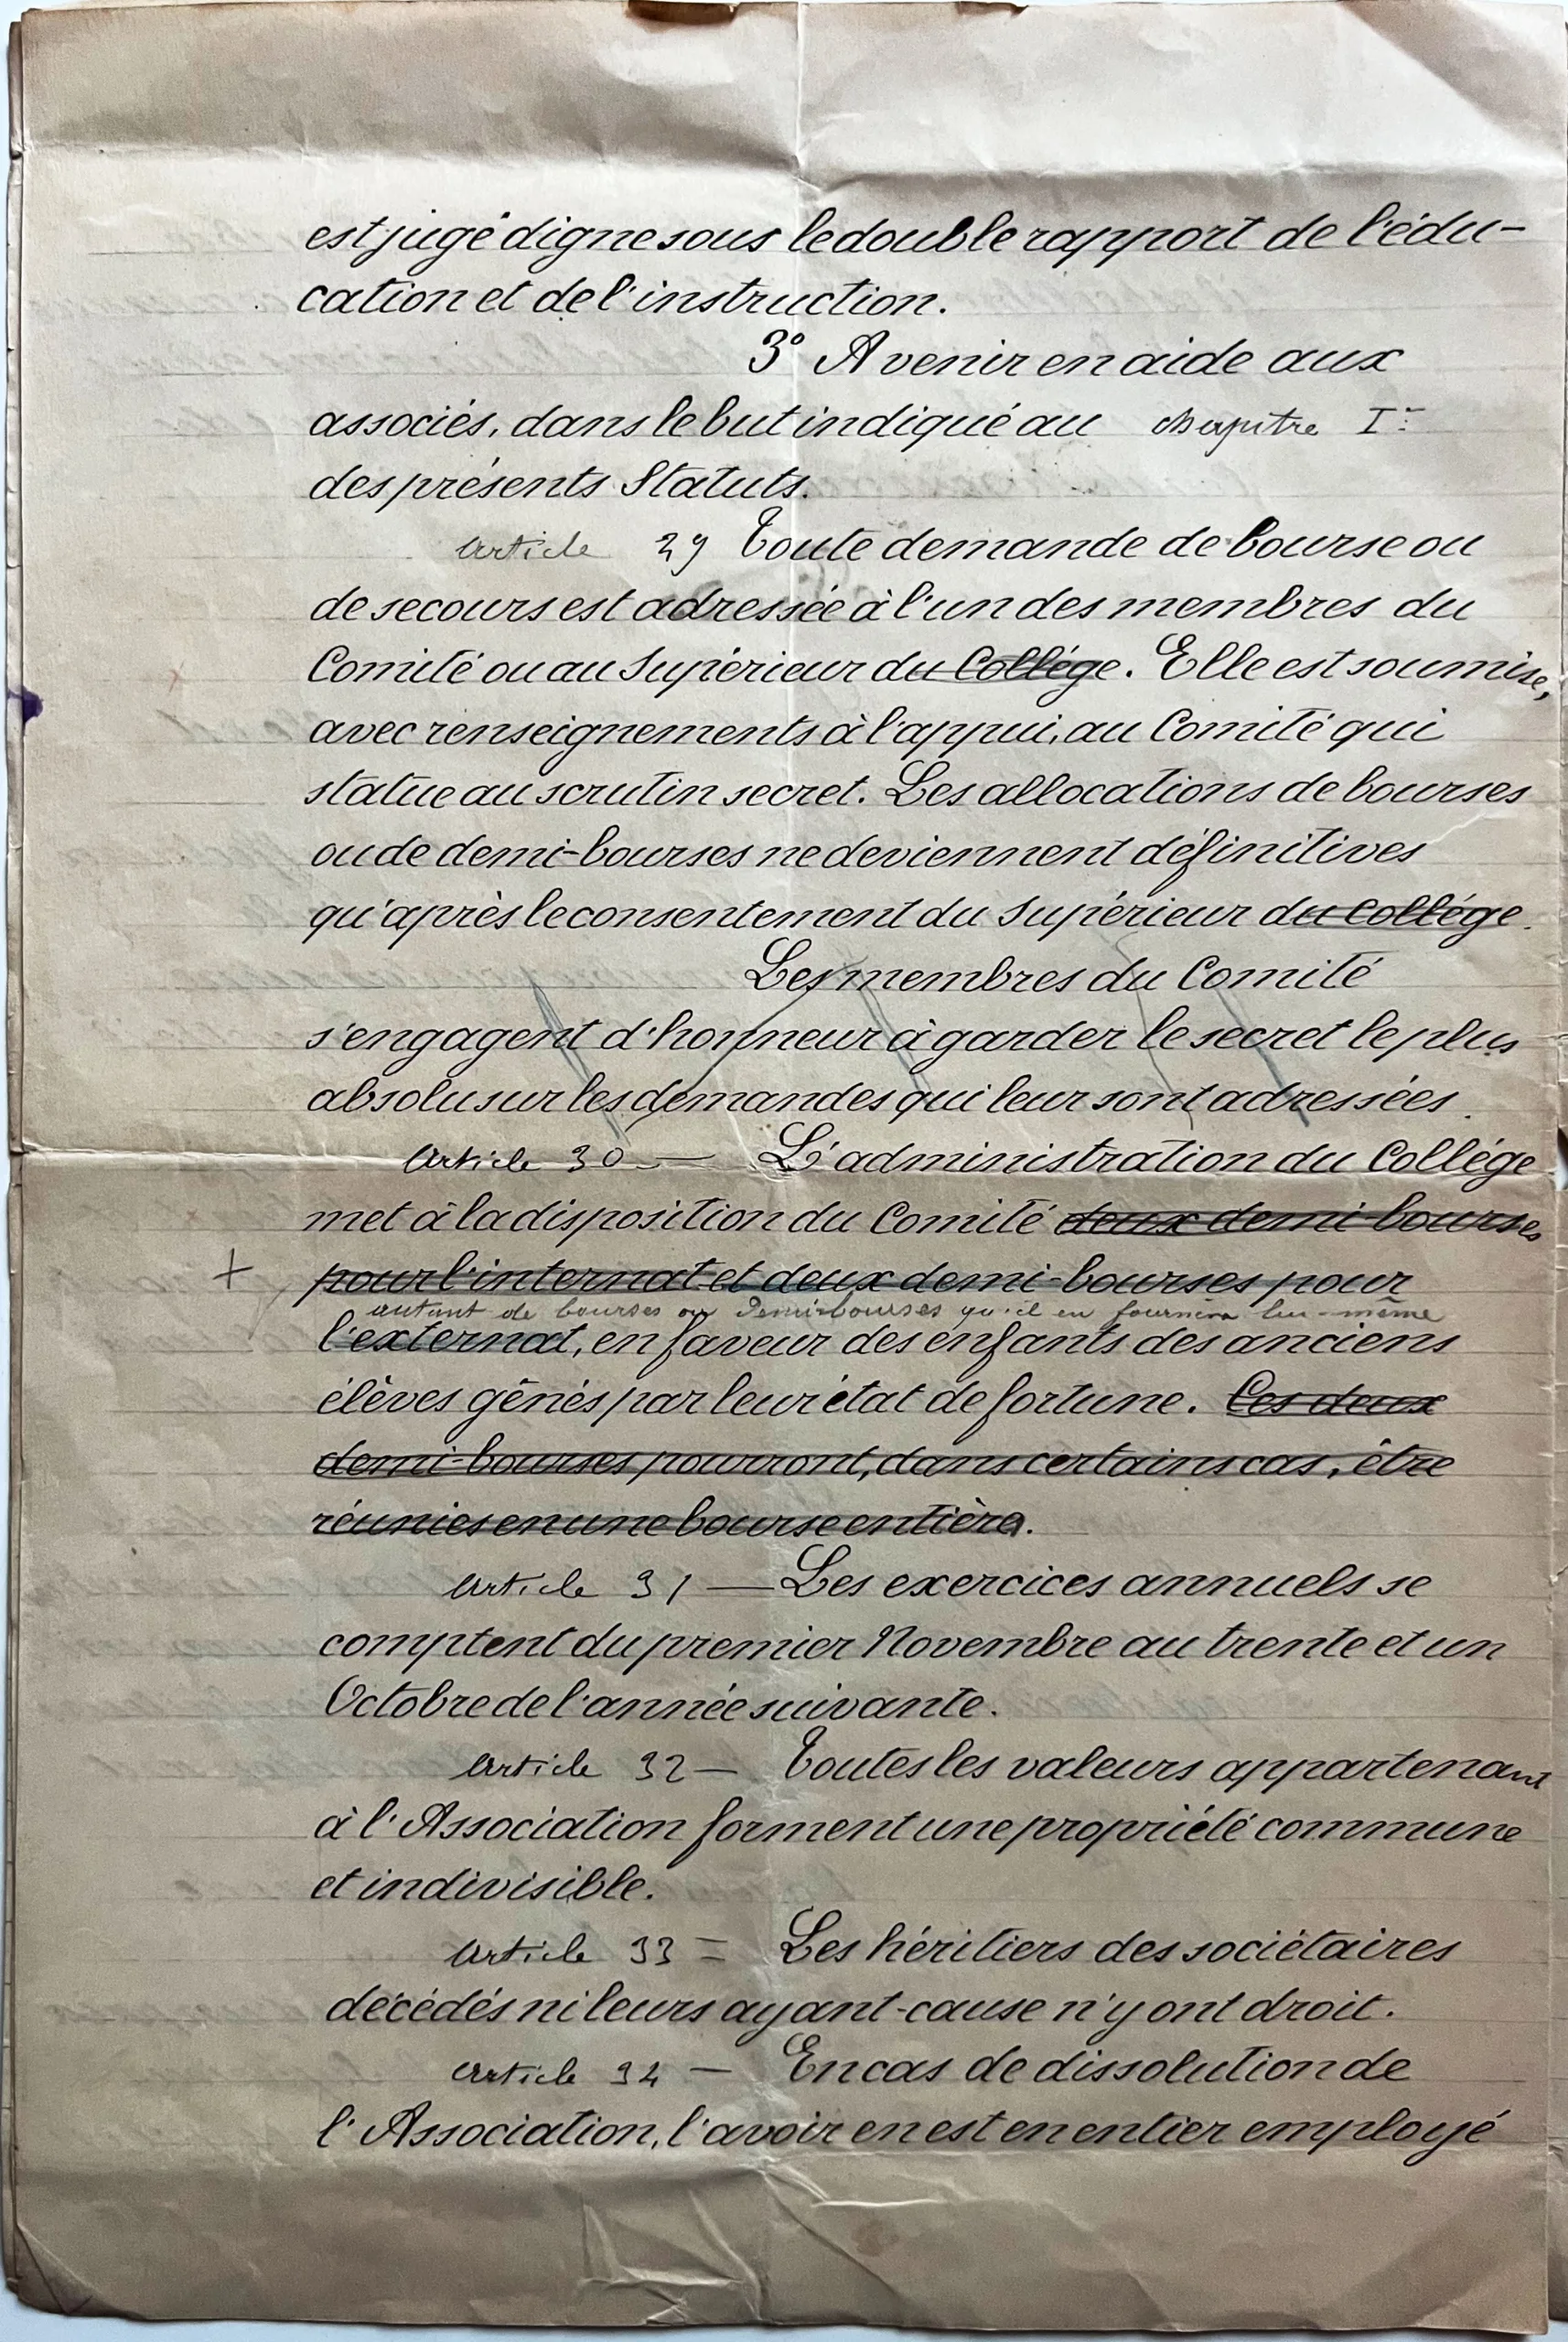 est jugé digne sous le double rapport de l'édu-
cation et de l'instruction.
3° A venir en aide aux
associés, dans le but indiqué au chapitre Ier
des présents Statuts.
Article 29 Toute demande de bourse ou
de secours est adressée à l'un des membres du
Comité ou au Supérieur du Collége. Elle est soumise,
avec renseignements à l'appui, au Comité qui
statue au scrutin secret. Les allocations de bourses
ou de demi-bourses ne deviennent définitives
qu'après le consentement du Supérieur du Collége.
Les membres du Comité
s'engagent d'honneur à garder le secret le plus
absolu sur les demandes qui leur sont adressées.
Article 30 — L'administration du Collége
met à la disposition du Comité deux demi-bourses
+ pour l'internat et deux demi-bourses pour
autant de bourses ou demi-bourses qu'il en fournira lui-même
l'externat, en faveur des enfants des anciens
élèves gênés par leur état de fortune. Ces deux
demi-bourses pourront, dans certains cas, être
réunies en une bourse entière.
Article 31 — Les exercices annuels se
comptent du premier Novembre au trente et un
Octobre de l'année suivante.
Article 32 — Toutes les valeurs appartenant
à l'Association forment une propriété commune
et indivisible.
Article 33 = Les héritiers des sociétaires
décédés ni leurs ayant-cause n'y ont droit.
Article 34 — En cas de dissolution de
l'Association, l'avoir en est en entier employé